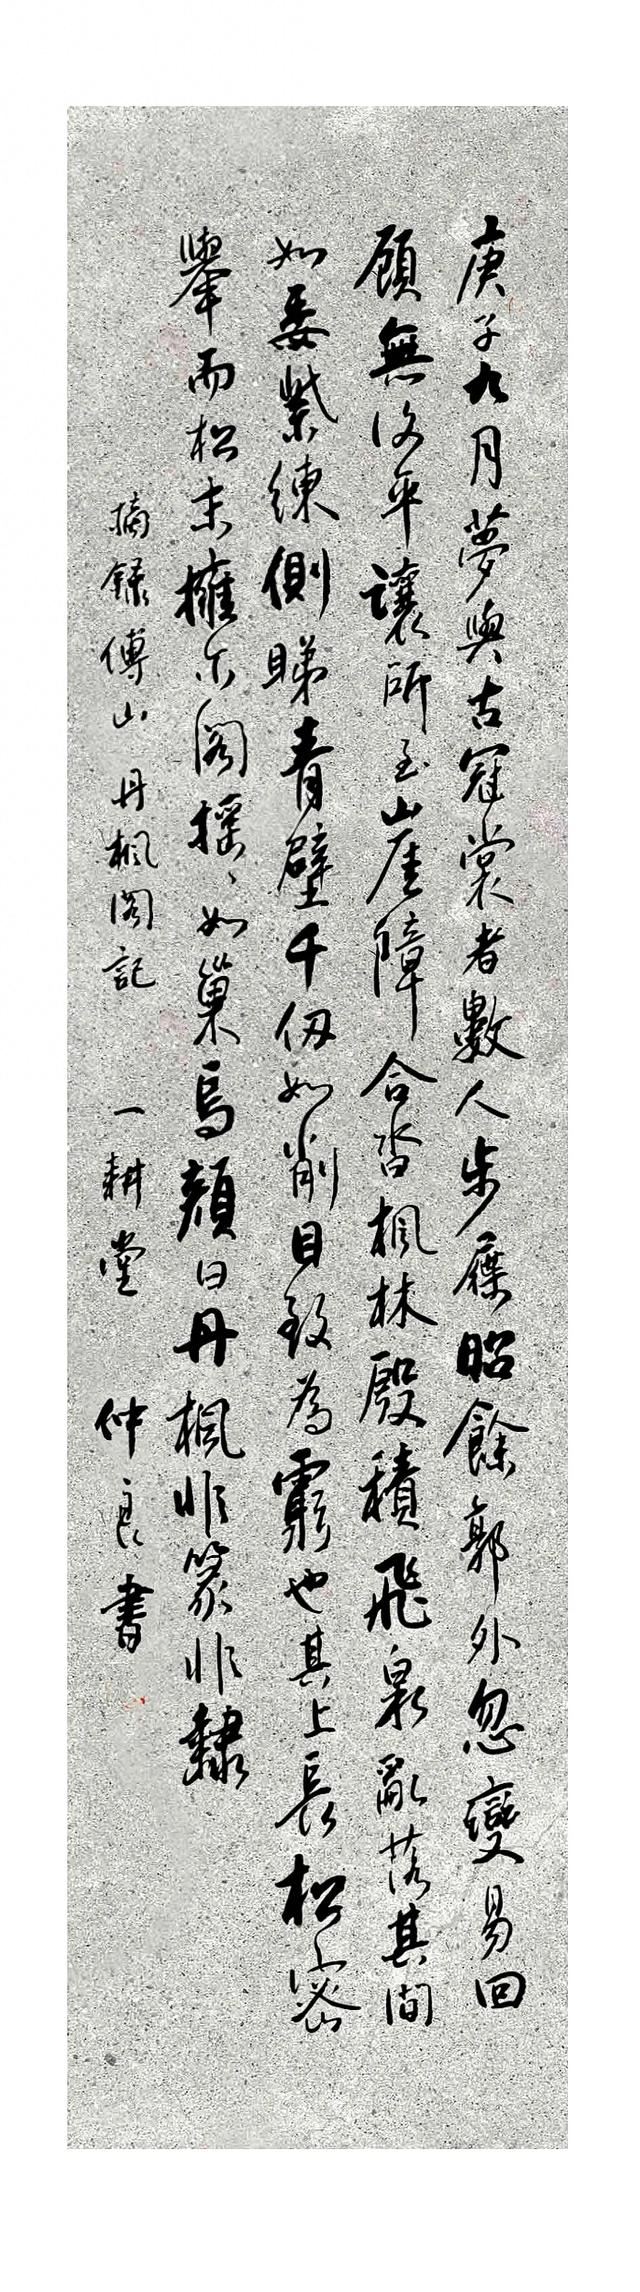 庚子九月夢與古冠裳者數人步屧昭餘郭外忽變易回
顧無復平讓所至山厓障合沓楓林殷積飛泉亂落其間
如委紫練側睇青壁千仞如削目致為窮也其上長松密
舉而松末擁小閣搖、如巢焉顏曰丹楓非篆非隸
摘錄傅山丹楓閣記 一耕堂 仲良書